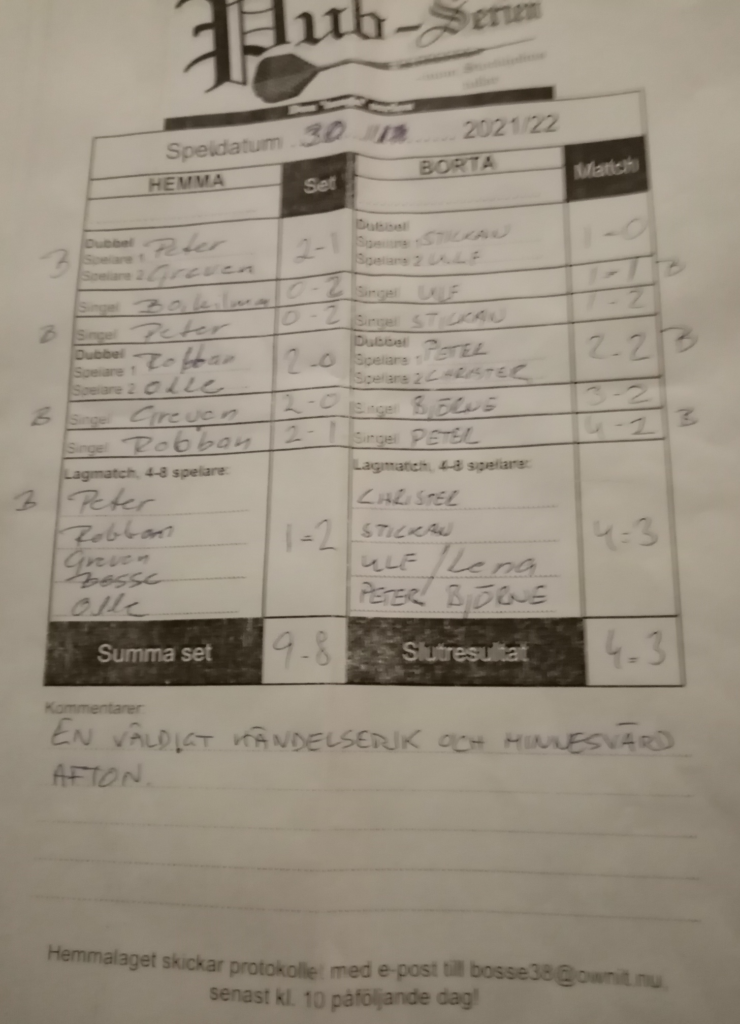 Pub-Serien
Speldatum 30 2021/22
HEMMA Set BORTA Match
B Dubbel Spelare 1 Peter 2-1 Dubbel Spelare 1 STICKAN 1-0
Spelare 2 Greven Spelare 2 ULF
Singel 0-2 Singel ULF 1-1 B
B Singel Peter 0-2 Singel STICKAN 1-2
Dubbel Spelare 1 Robban 2-0 Dubbel Spelare 1 PETER 2-2 B
Spelare 2 Olle Spelare 2 CHRISTER
B Singel Greven 2-0 Singel BJÖRNE 3-2
Singel Robban 2-1 Singel PETER 4-2 B
Lagmatch, 4-8 spelare: Lagmatch, 4-8 spelare:
B Peter CHRISTER
Robban 1-2 STICKAN 4-3
Greven ULF / Lena
bosse PETER BJÖRNE
Olle
Summa set 9-8 Slutresultat 4-3
Kommentarer:
EN VÄLDIGT HÄNDELSERIK OCH MINNESVÄRD
AFTON.
Hemmalaget skickar protokollet med e-post till bosse38@ownit.nu,
senast kl. 10 påföljande dag!